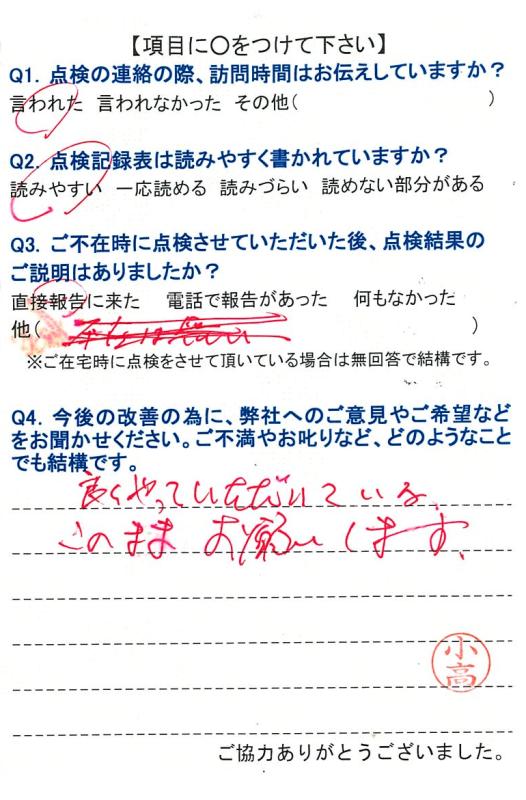 【項目に○をつけて下さい】
Q1. 点検の連絡の際、訪問時間はお伝えしていますか？
言われた 言われなかった その他( )
Q2. 点検記録表は読みやすく書かれていますか？
読みやすい 一応読める 読みづらい 読めない部分がある
Q3. ご不在時に点検させていただいた後、点検結果の
ご説明はありましたか？
直接報告に来た 電話で報告があった 何もなかった
他( )
※ご在宅時に点検をさせて頂いている場合は無回答で結構です。
Q4. 今後の改善の為に、弊社へのご意見やご希望など
をお聞かせください。ご不満やお叱りなど、どのようなこと
でも結構です。
良くやっていただいている。
このまま お願いします。
小高
ご協力ありがとうございました。